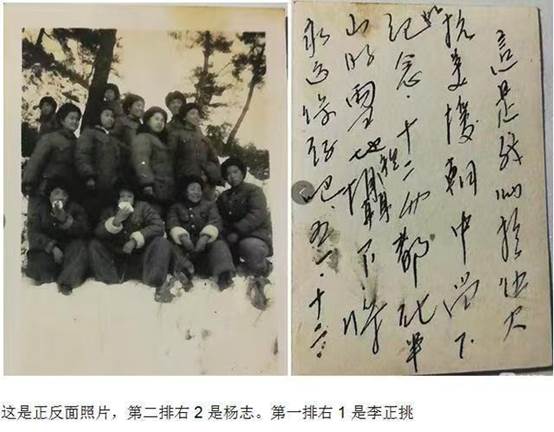 這是我们於伟大
抗美援朝中留下
的纪念.十二
山的雪地裡攝下
永远保存吧.五一.十二.
这是正反面照片，第二排右2是杨志。第一排右1是李正挑